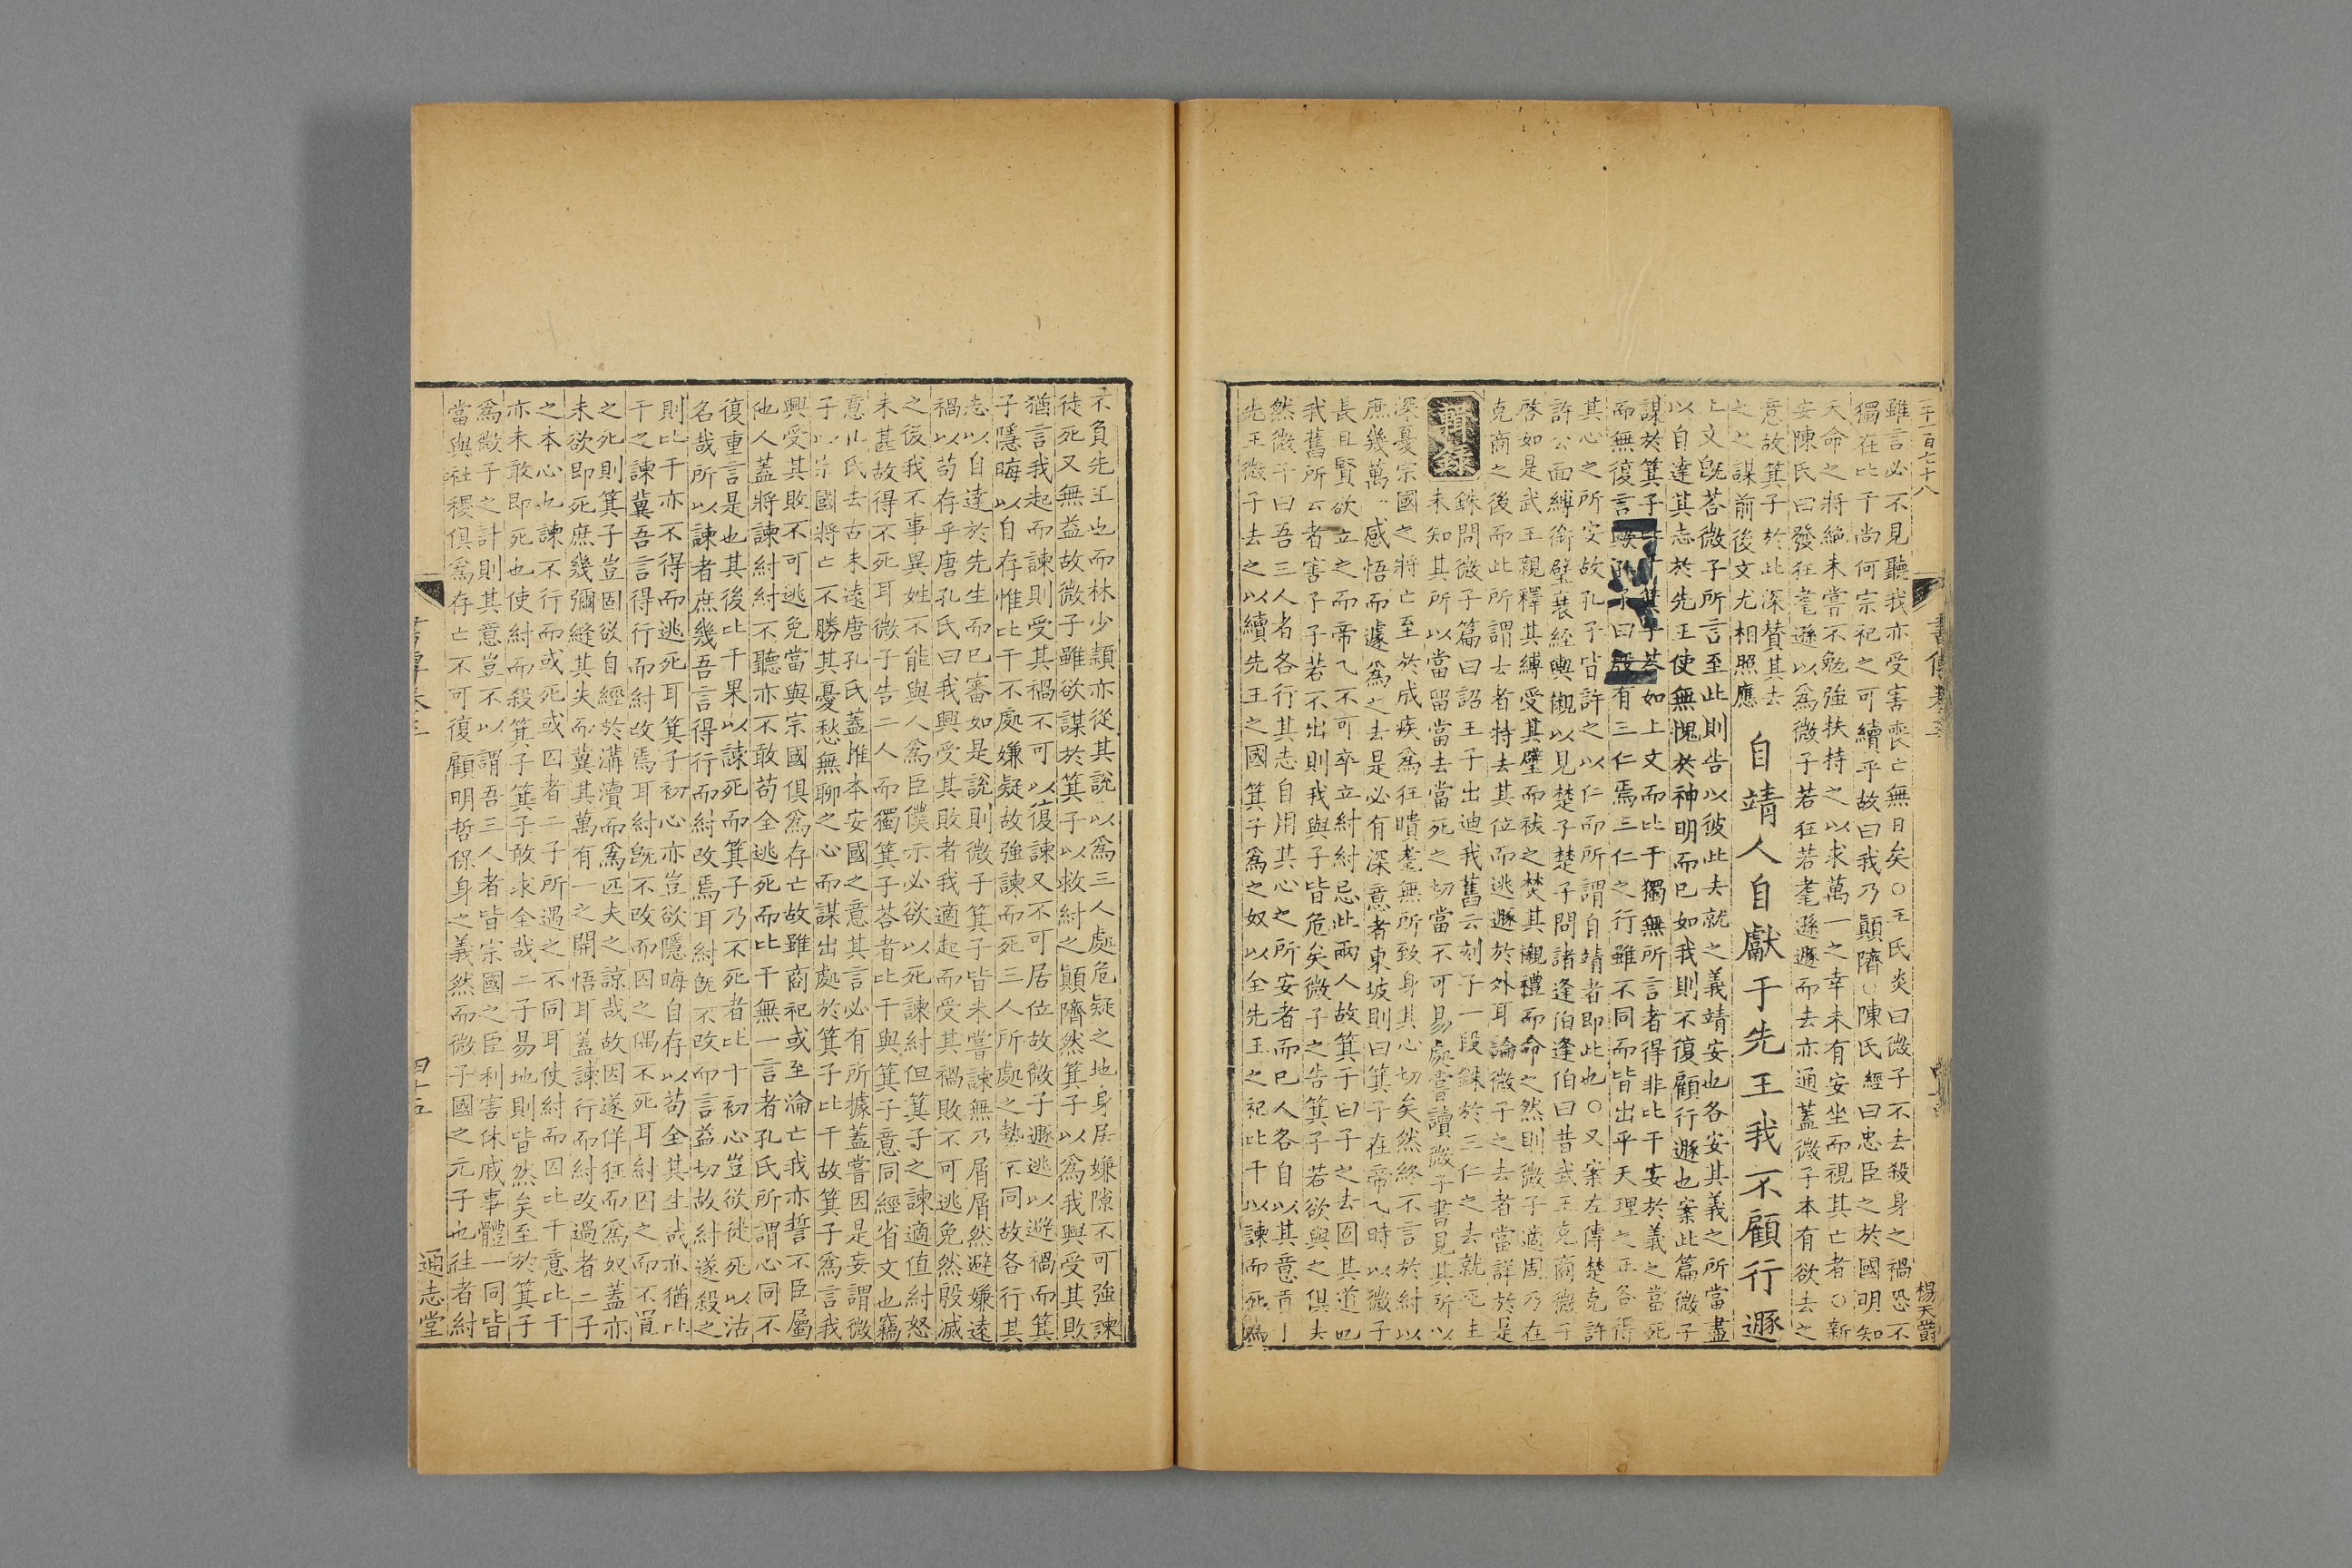 二千一百七十八
書傳卷三
楊天爵
雖言必不見聽我亦受害喪亡無日矣○王氏炎曰微子不去殺身之禍恐不
獨在比干尚何宗祀之可續乎故曰我乃顛隮○陳氏經曰忠臣之於國明知
天命之將絶未嘗不勉強扶持之以求萬一之幸未有安坐而視其亡者○新
安陳氏曰發狂耄遜以爲微子若狂若耄遜遯而去亦通蓋微子本有欲去之
意故箕子於此深贊其去
之之謀前後文尤相照應
自靖人自獻于先王我不顧行遯
上文旣荅微子所言至此則告以彼此去就之義靖安也各安其義之所當盡
以自達其志於先王使無愧於神明而已如我則不復顧行遯也案此篇微子
謀於箕子比干箕子荅如上文而比干獨無所言者得非比干安於義之當死
而無復言歟孔子曰殷有三仁焉三仁之行雖不同而皆出乎天理之正各得
其心之所安故孔子皆許之以仁而所謂自靖者即此也○又案左傳楚克許
許公面縛銜璧衰絰輿櫬以見楚子楚子問諸逢伯逢伯曰昔武王克商微子
啓如是武王親釋其縛受其璧而祓之焚其櫬禮而命之然則微子適周乃在
克商之後而此所謂去者特去其位而逃遯於外耳論微子之去者當詳於是
輯錄
銖問微子篇曰詔王子出迪我舊云刻子一段銖於三仁之去就死生
未知其所以當留當去當死之切當不可易處嘗讀微子書見其所以
深憂宗國之將亡至於成疾爲狂瞶耄無所致身其心切矣然終不言於紂以
庶幾萬一感悟而遽爲之去是必有深意者東坡則曰箕子在帝乙時以微子
長且賢欲立之而帝乙不可卒立紂紂忌此兩人故箕子曰子之去固其道也
我舊所云者害子子若不出則我與子皆危矣微子之告箕子若欲與之俱去
然微子曰吾三人者各行其志自用其心之所安者而已人各自以其意貢于
先王微子去之以續先王之國箕子爲之奴以全先王之祀比干以諫而死爲
不負先王也而林少穎亦從其說以爲三人處危疑之地身居嫌隙不可強諫
徒死又無益故微子雖欲謀於箕子以救紂之顛隮然箕子以爲我興受其敗
猶言我起而諫則受其禍不可以復諫又不可居位故微子遯逃以避禍而箕
子隱晦以自存惟比干不處嫌疑故強諫而死三人所處之勢不同故各行其
志以自達於先生而已審如是說則微子箕子皆未嘗諫無乃屑屑然避嫌遠
禍以苟存乎唐孔氏曰我興受其敗者我適起而受其禍敗不可逃免然殷滅
之後我不事異姓不能與人爲臣僕示必欲以死諫紂但箕子之諫適值紂怒
未甚故得不死耳微子告二人而獨箕子荅者比干與箕子意同經省文也竊
意此氏去古未遠唐孔氏蓋惟本安國之意其言必有所據蓋嘗因是妄謂微
子以宗國將亡不勝其憂愁無聊之心而謀出處於箕子比干故箕子爲言我
興受其敗不可逃免當與宗國俱爲存亡故雖商祀或至淪亡我亦誓不臣屬
他人蓋將諫紂紂不聽亦不敢苟全逃死而比干無一言者孔氏所謂心同不
復重言是也其後比干果以諫死而箕子乃不死者比干初心豈欲徒死以沽
名哉所以諫者庶幾吾言得行而紂改焉耳紂旣不改而言益切故紂遂殺之
則比干亦不得而逃死耳箕子初心亦豈欲隱晦自存以苟全其生哉亦猶比
干之諫冀吾言得行而紂改焉耳紂旣不改而囚之偶不死耳紂囚之而不置
之死則箕子豈固欲自經於溝瀆而爲匹夫之諒哉故因遂佯狂而爲奴蓋亦
未欲即死庶幾彌縫其失而冀其萬有一之開悟耳蓋諫行而紂改過者二子
之本心也諫不行而或死或囚者二子所遇之不同耳使紂而囚比干意比干
亦未敢即死也使紂而殺箕子箕子敢求全哉二子易地則皆然矣至於箕子
爲微子之計則其意豈不以謂吾三人者皆宗國之臣利害休戚事體一同皆
當與社稷俱爲存亡不可復顧明哲保身之義然而微子國之元子也往者紂
書傳卷三
四十五
通志堂